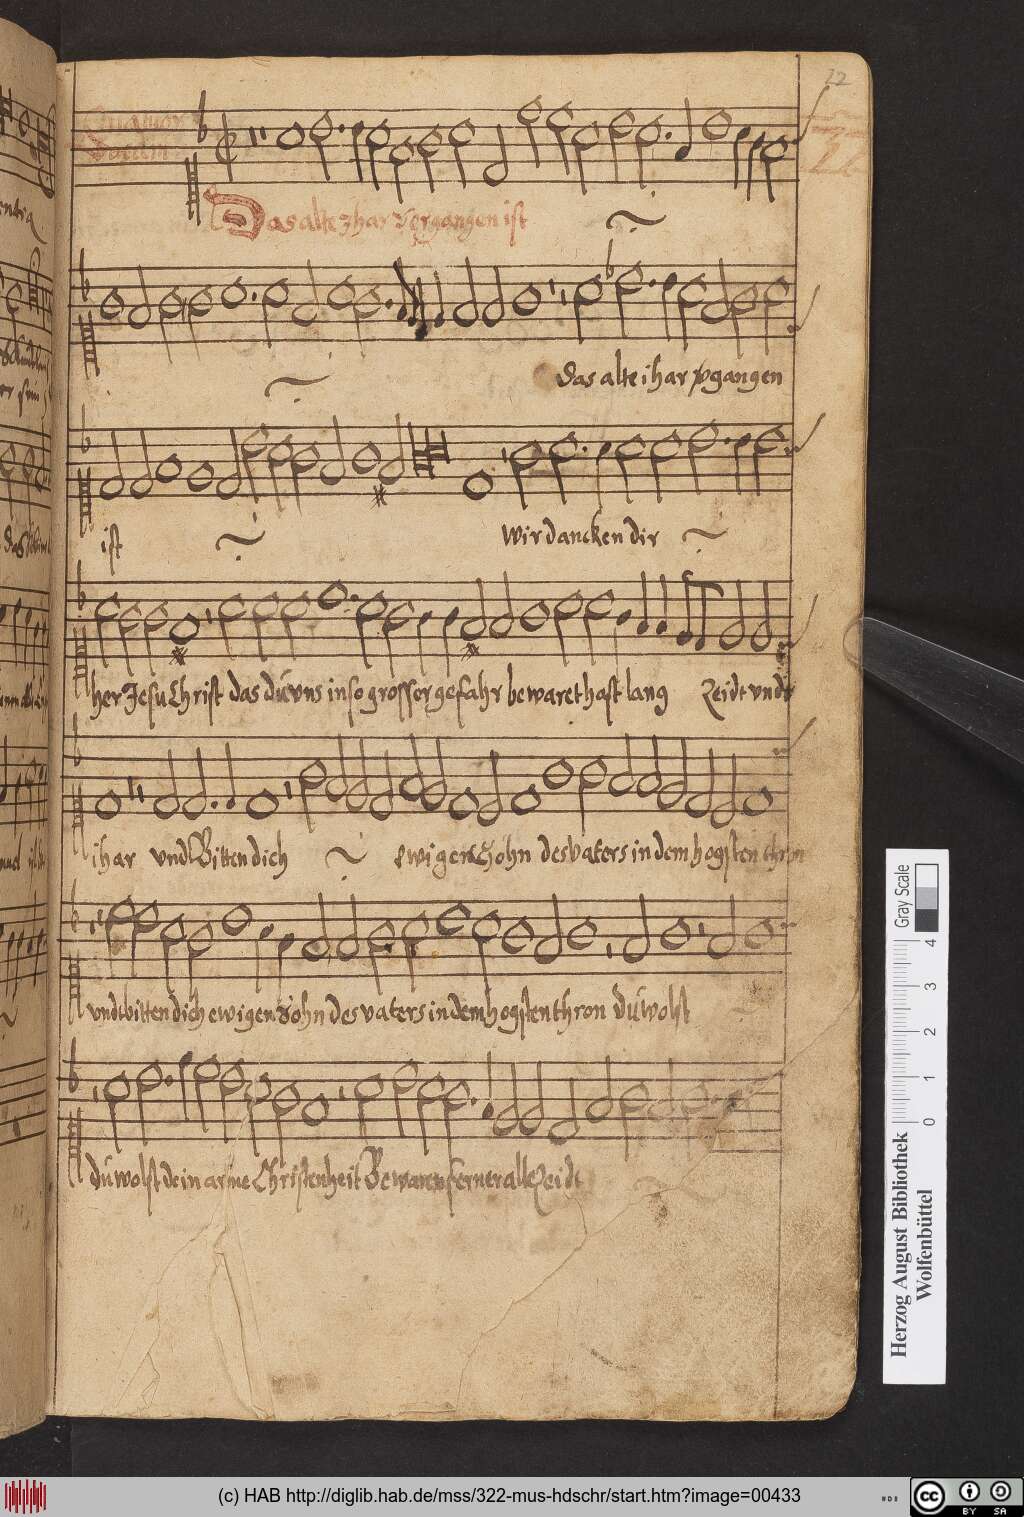 22
Quatuor
vocum
Das alte ihar vergangen ist
das alte ihar vgangen
ist
wir dancken dir
her Jesu Christ das du vns in so grosser gefahr bewaret hast lang Zeidt vndt
ihar vndt Bitten dich ewigen Sohn des vaters in dem hogsten thron
vndt bitten dich ewigen Sohn des vaters in dem hogsten thron du wolst
du wolst dein arme Christenheit Bewaren ferner alle Zeidt
Gray Scale
4
3
2
1
0
Herzog August Bibliothek
Wolfenbüttel
(c) HAB http://diglib.hab.de/mss/322-mus-hdschr/start.htm?image=00433
cc
BY SA